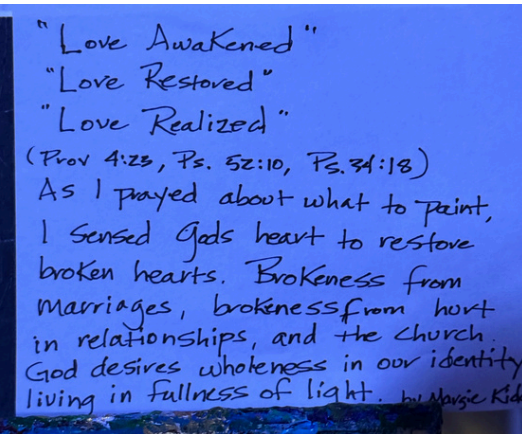 "Love Awakened"
"Love Restored"
"Love Realized"
(Prov 4:23, Ps. 52:10, Ps. 34:18)
As I prayed about what to paint,
I sensed Gods heart to restore
broken hearts. Brokeness from
marriages, brokeness from hurt
in relationships, and the church.
God desires wholeness in our identity
living in fullness of light. by Margie